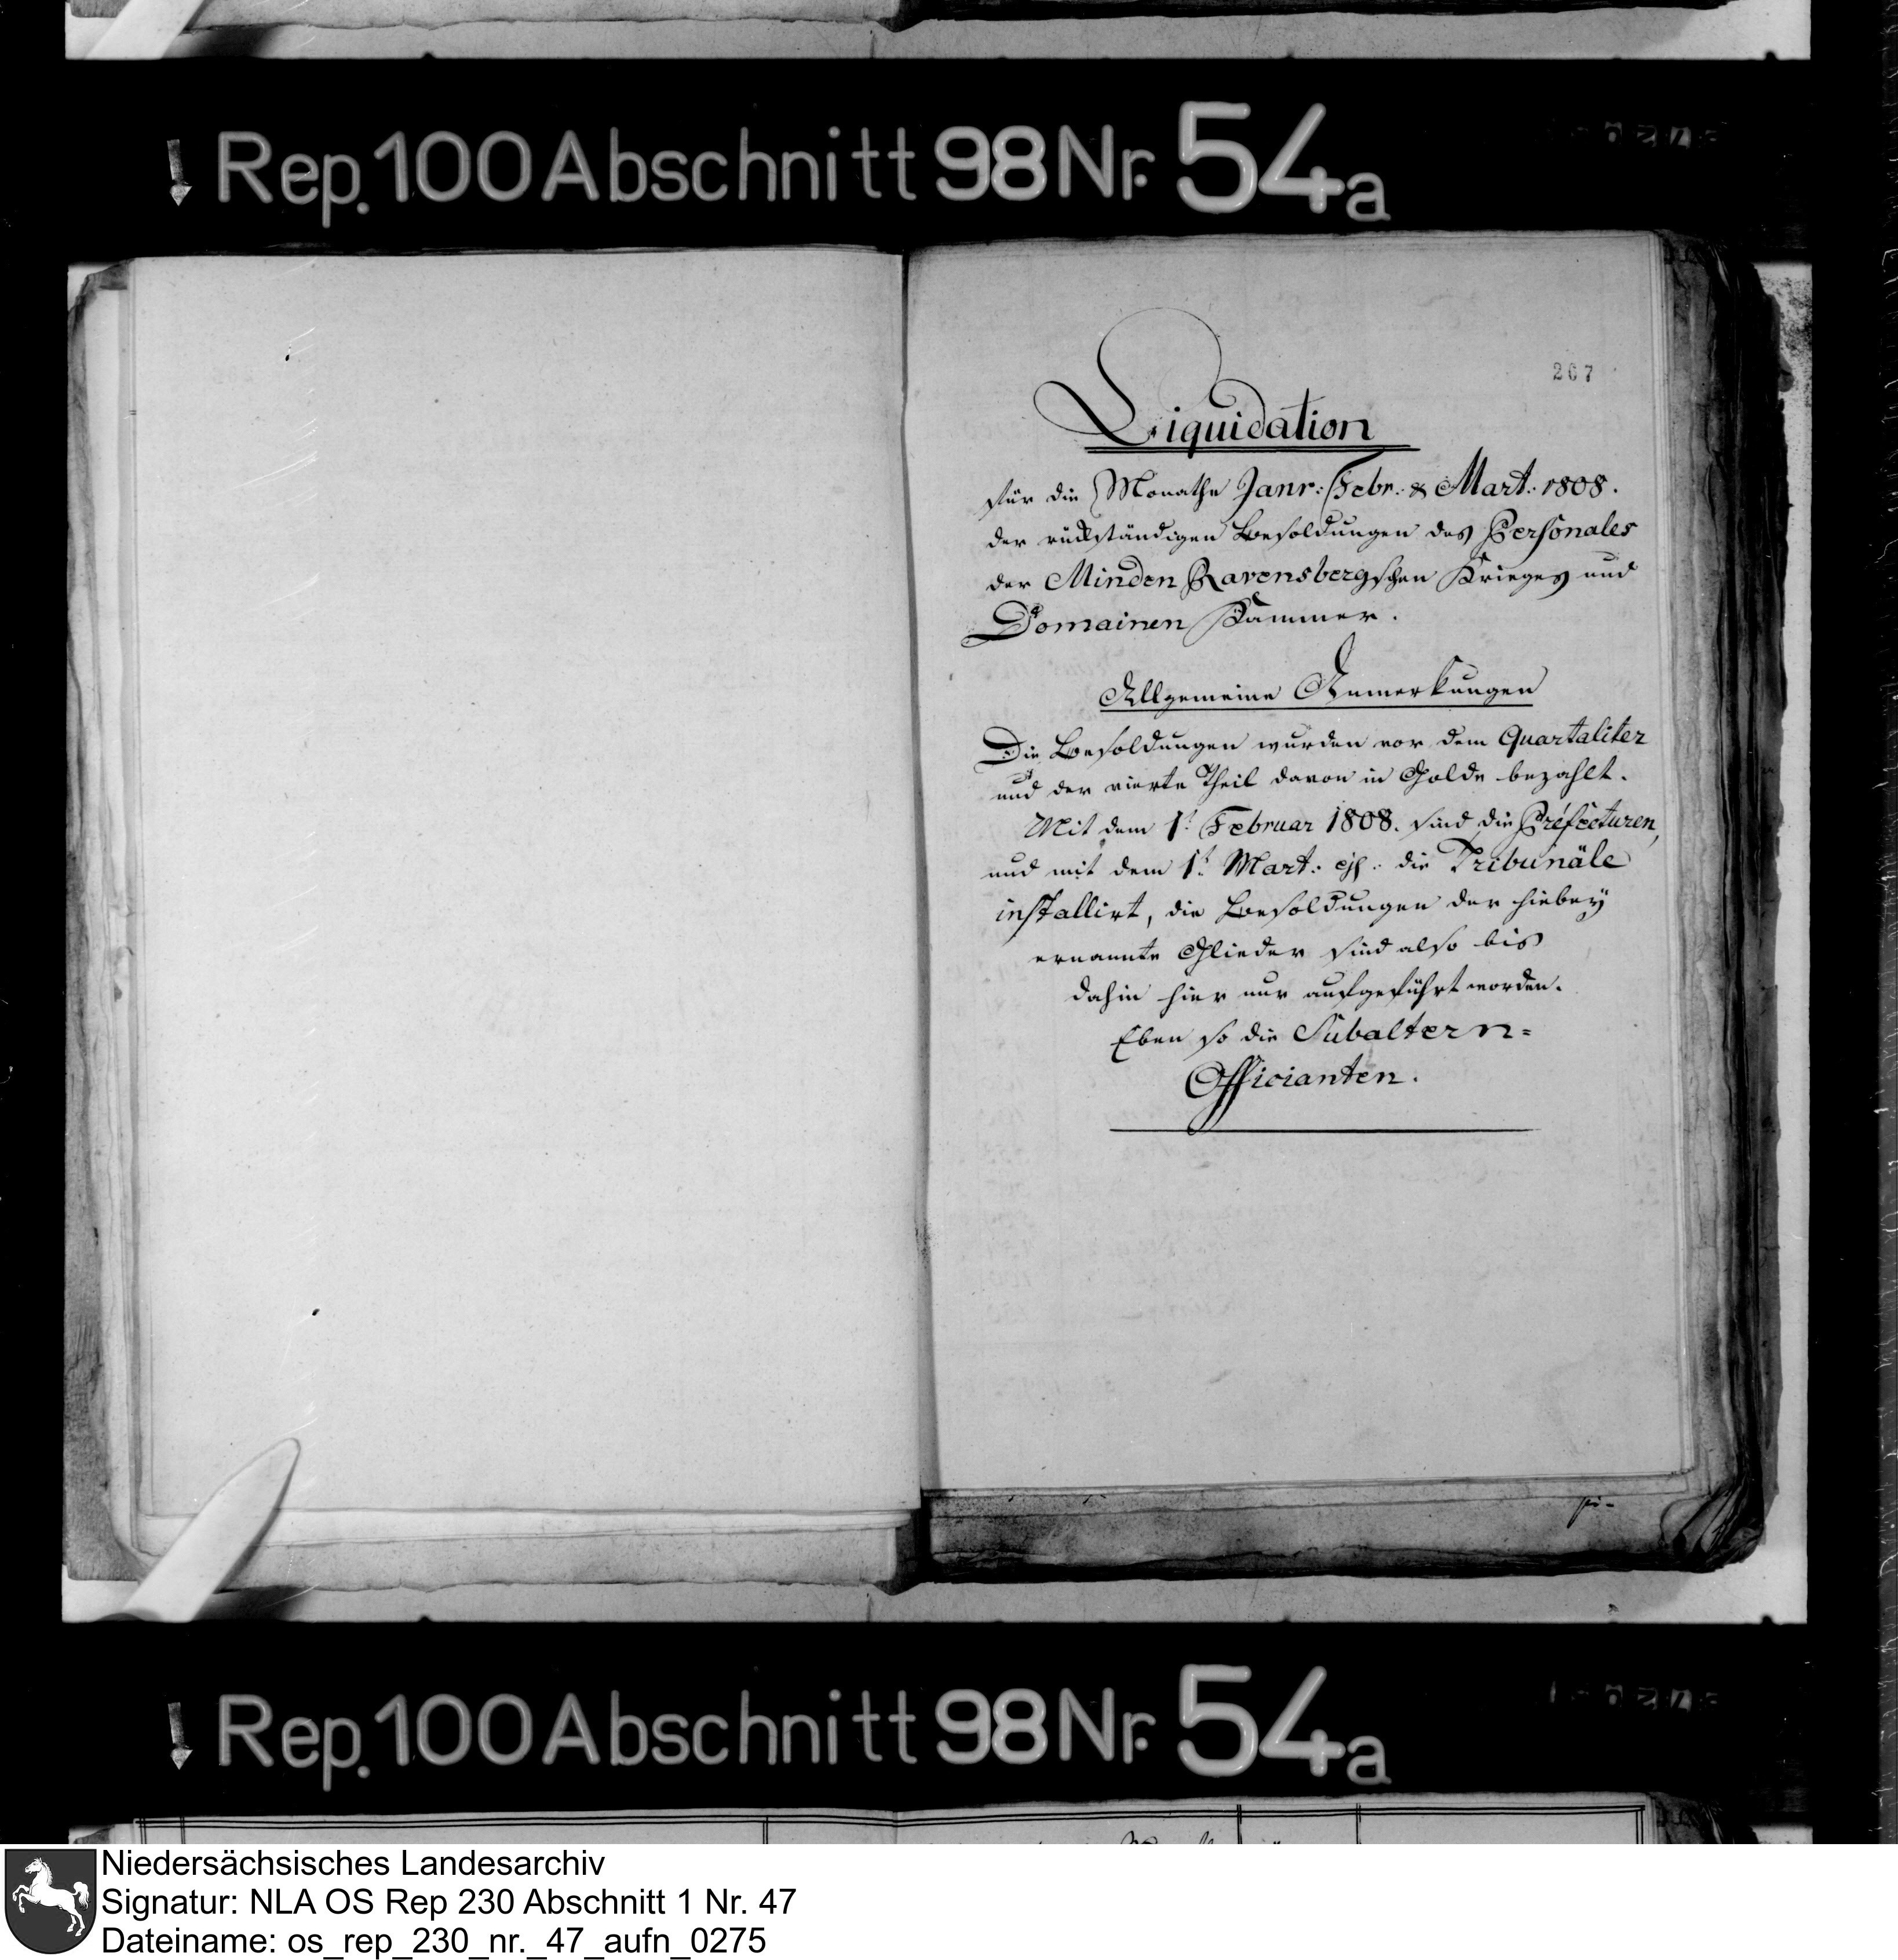 Rep. 100 Abschnitt 98 Nr. 54a
267
Liquidation
für die Monathe Janr: Febr: & Mart: 1808.
der rückständigen Besoldungen des Personales
der Minden Ravensbergschen Krieges und
Domainen Kammer.
Allgemeine Anmerkungen
Die Besoldungen wurden vor dem Quartaliter
und der vierte Theil davon in Golde bezahlt.
Mit dem 1t. Februar 1808. sind die Préfecturen,
und mit dem 1t. Mart: ej: die Tribunäle
installirt, die Besoldungen der hiebey
ernannte Glieder sind also bis
dahin hier nur aufgeführt worden.
Eben so die Subaltern=
Officianten.
Rep. 100 Abschnitt 98 Nr. 54a
Niedersächsisches Landesarchiv
Signatur: NLA OS Rep 230 Abschnitt 1 Nr. 47
Dateiname: os_rep_230_nr._47_aufn_0275